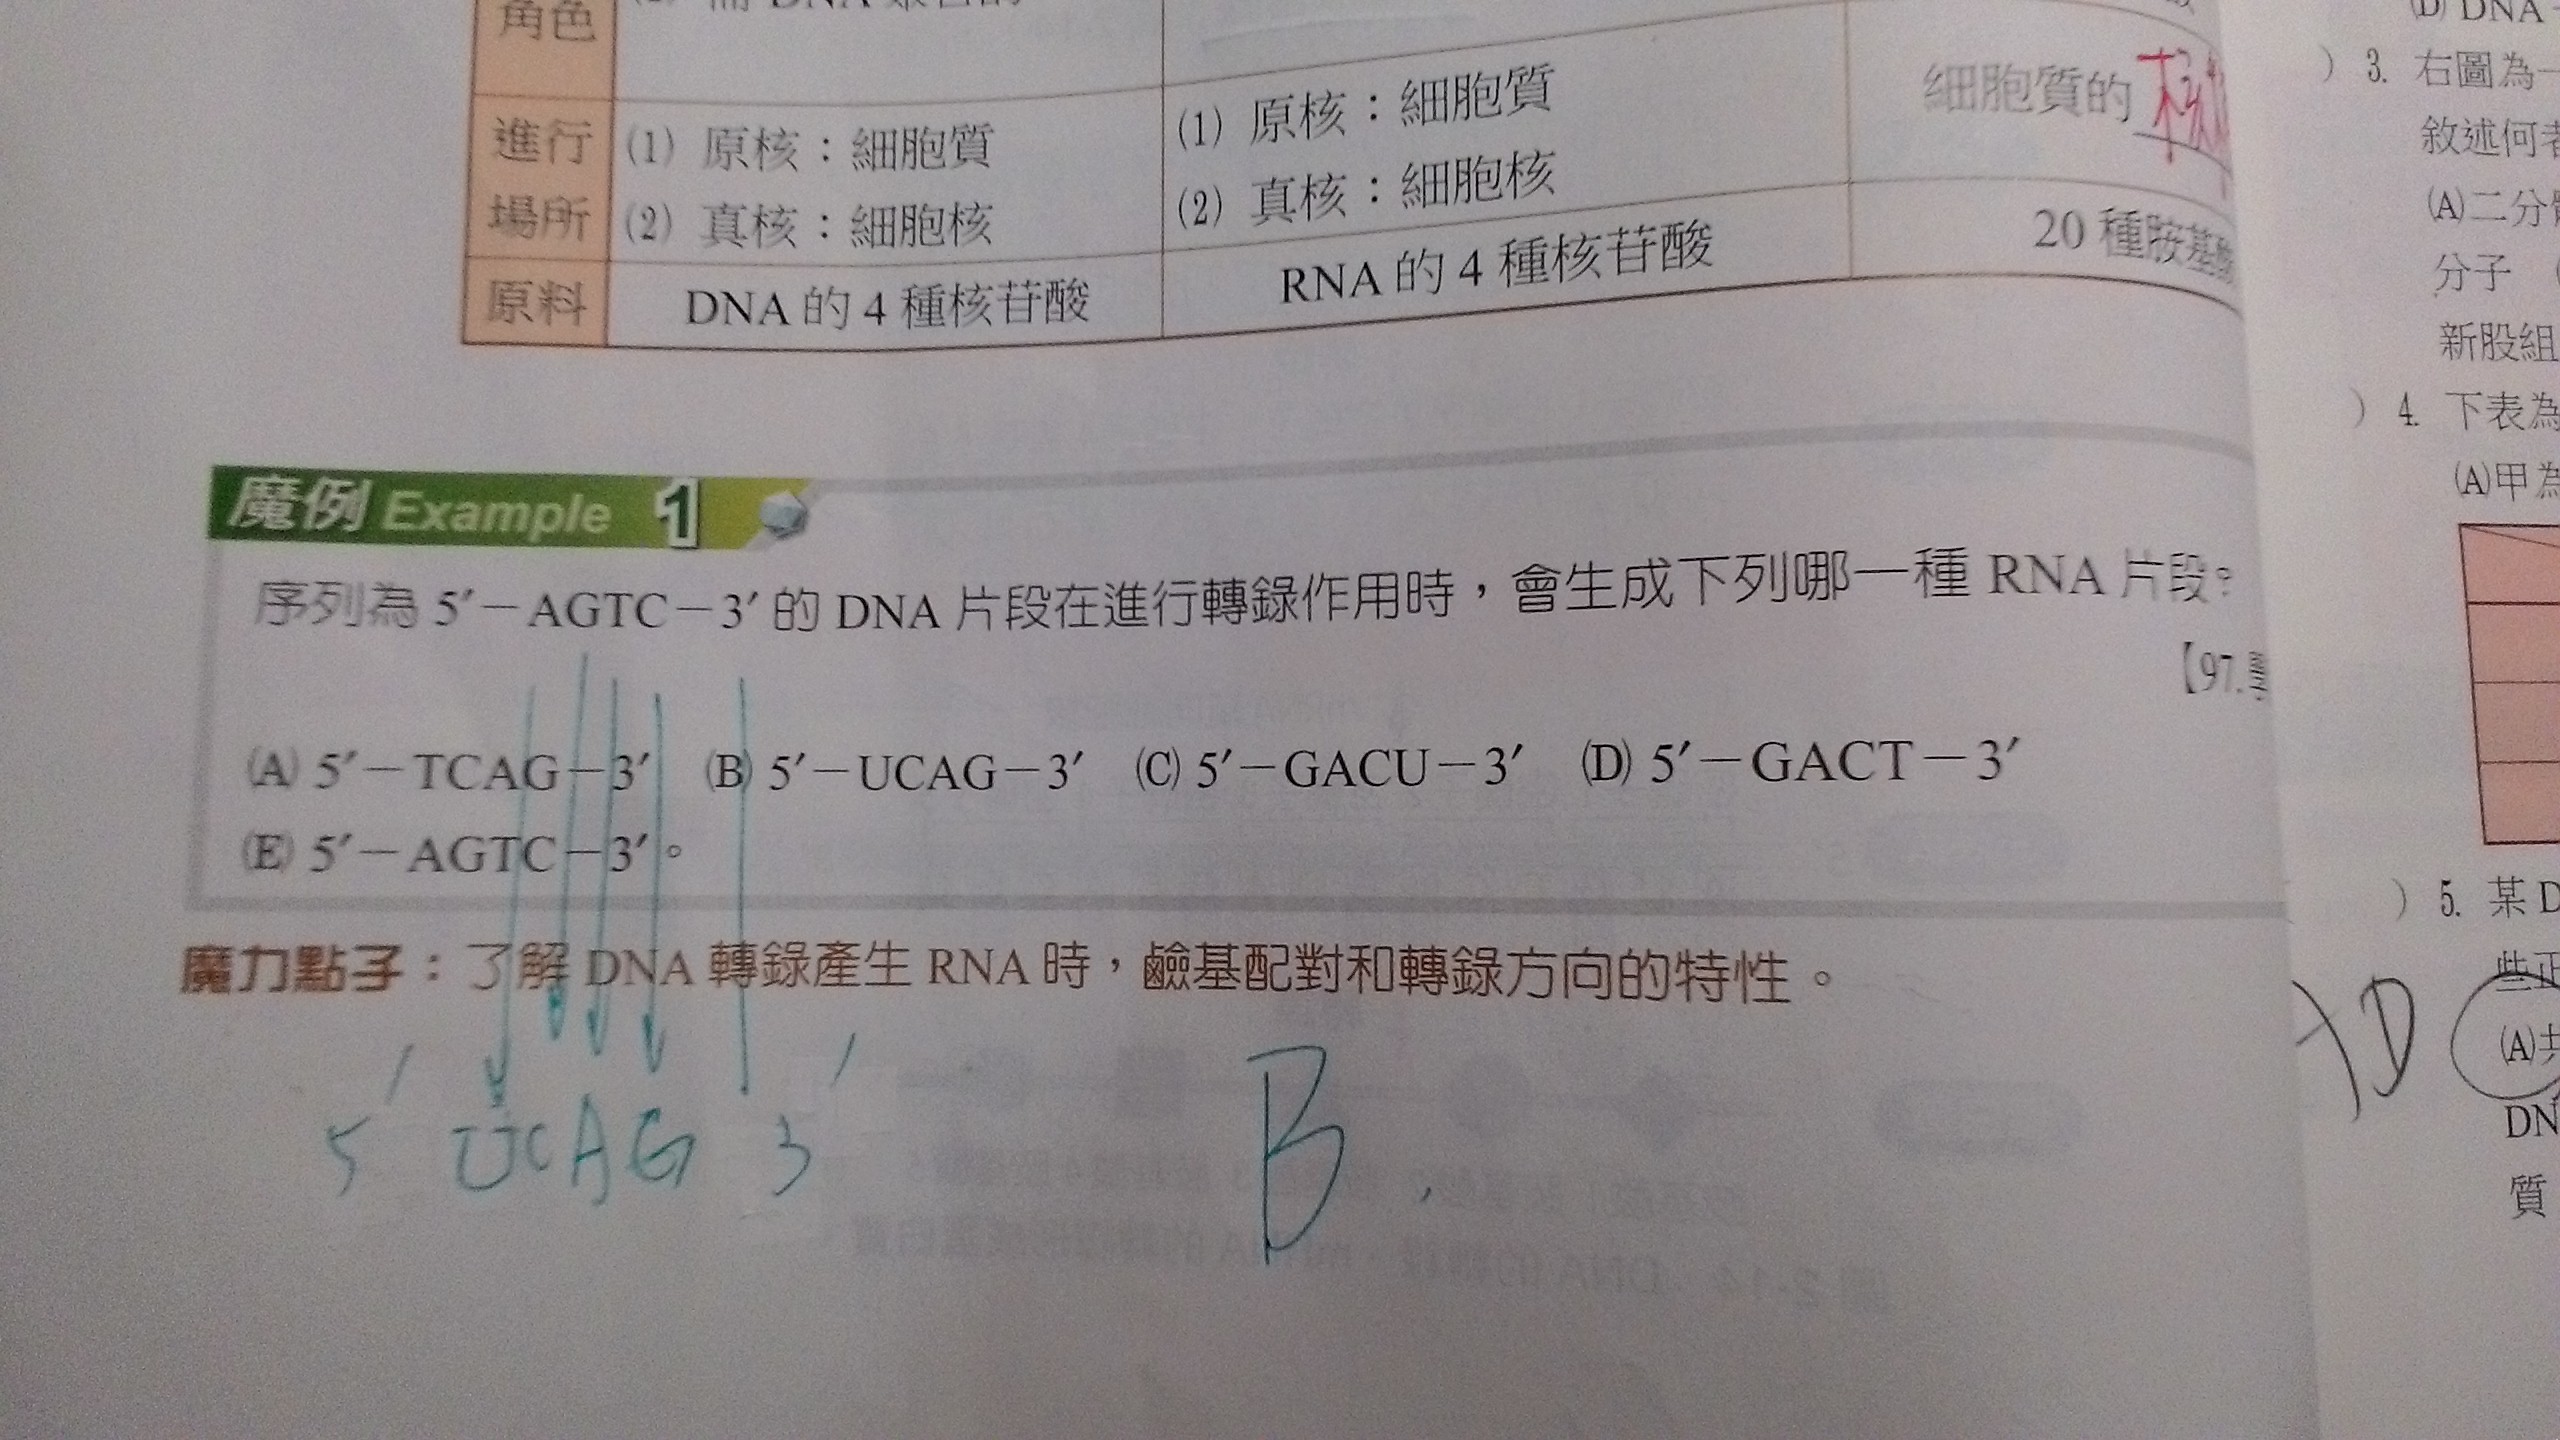 角色
進行場所
(1) 原核：細胞質
(2) 真核：細胞核
(1) 原核：細胞質
(2) 真核：細胞核
細胞質的
原料
DNA 的 4 種核苷酸
RNA 的 4 種核苷酸
20 種胺基酸
魔例 Example 1
序列為 5′－AGTC－3′ 的 DNA 片段在進行轉錄作用時，會生成下列哪一種 RNA 片段？
【97.學
(A) 5′－TCAG－3′ (B) 5′－UCAG－3′ (C) 5′－GACU－3′ (D) 5′－GACT－3′
(E) 5′－AGTC－3′。
魔力點子：了解 DNA 轉錄產生 RNA 時，鹼基配對和轉錄方向的特性。
5′ UCAG 3′
B
(D) DNA
) 3. 右圖為一
敘述何者
(A)二分體
分子
新股組
) 4. 下表為
(A)甲為
) 5. 某 D
些正
(A)共
DN
質